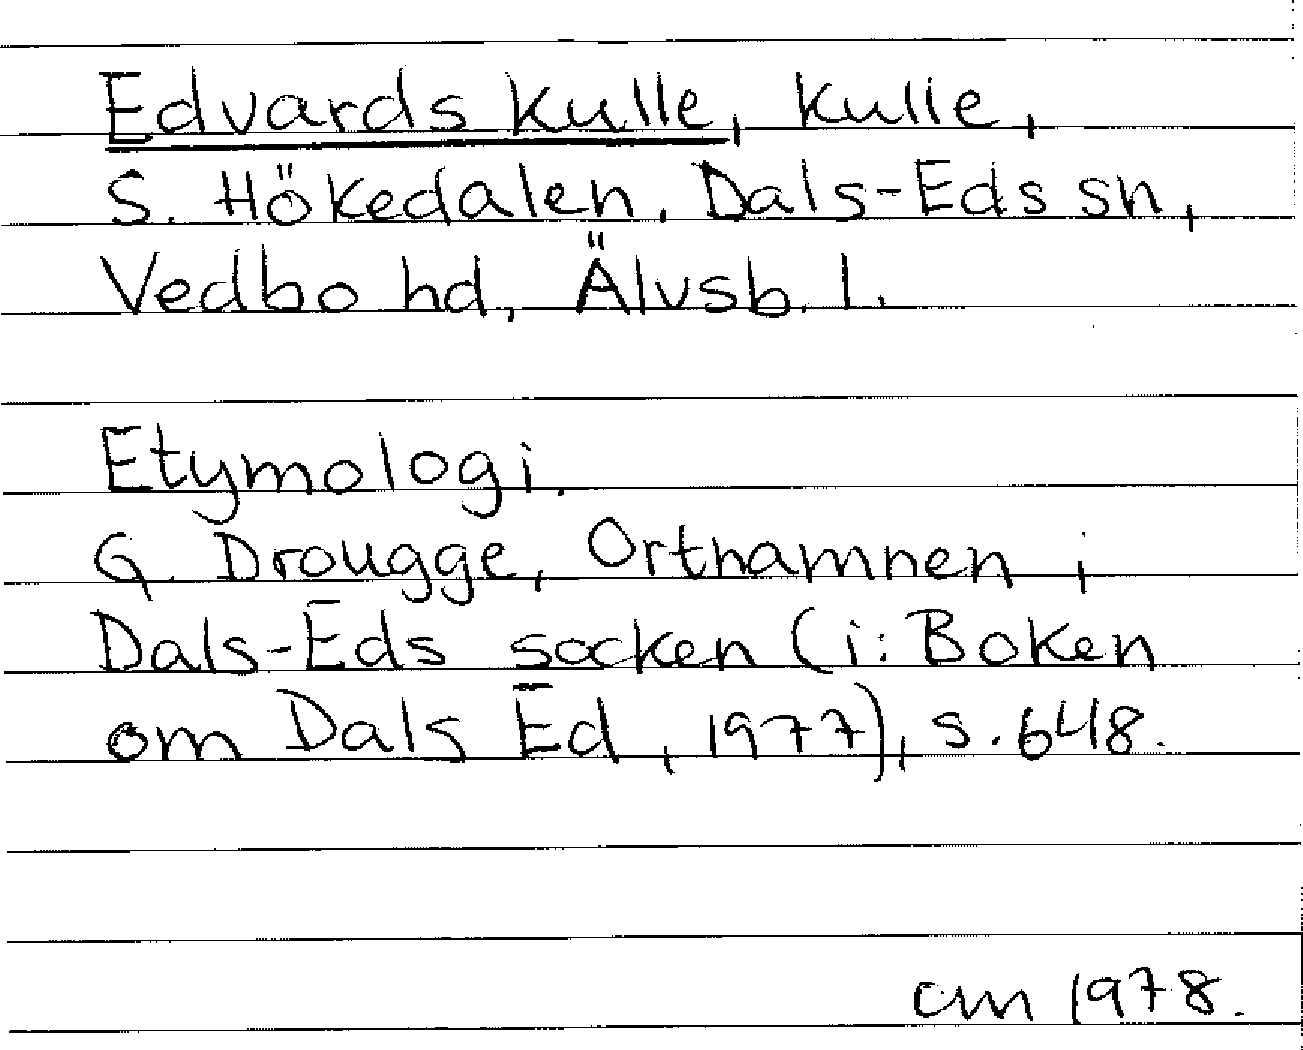 Edvards kulle, kulle,
S. Hökedalen, Dals-Eds sn,
Vedbo hd, Älvsb. l.
Etymologi.
G. Drougge, Ortnamnen i
Dals-Eds socken (i: Boken
om Dals Ed, 1977), s. 648.
cm 1978.